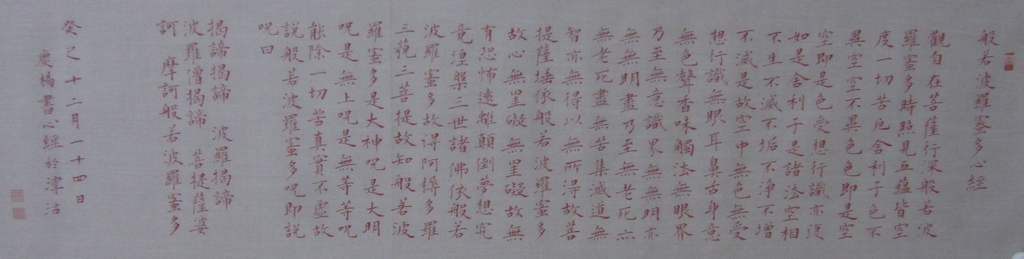 般若波羅蜜多心經
觀自在菩薩行深般若波
羅蜜多時照見五蘊皆空
度一切苦厄舍利子色不
異空空不異色色即是空
空即是色受想行識亦復
如是舍利子是諸法空相
不生不滅不垢不淨不增
不減是故空中無色無受
想行識無眼耳鼻舌身意
無色聲香味觸法無眼界
乃至無意識界無無明亦
無無明盡乃至無老死亦
無老死盡無苦集滅道無
智亦無得以無所得故菩
提薩埵依般若波羅蜜多
故心無罣礙無罣礙故無
有恐怖遠離顛倒夢想究
竟涅槃三世諸佛依般若
波羅蜜多故得阿耨多羅
三藐三菩提故知般若波
羅蜜多是大神呪是大明
呪是無上呪是無等等呪
能除一切苦真實不虛故
說般若波羅蜜多呪即說
呪曰
揭諦揭諦 波羅揭諦
波羅僧揭諦 菩提薩婆
訶 摩訶般若波羅蜜多
癸巳十二月一十四日
慶楊書心經於津沽